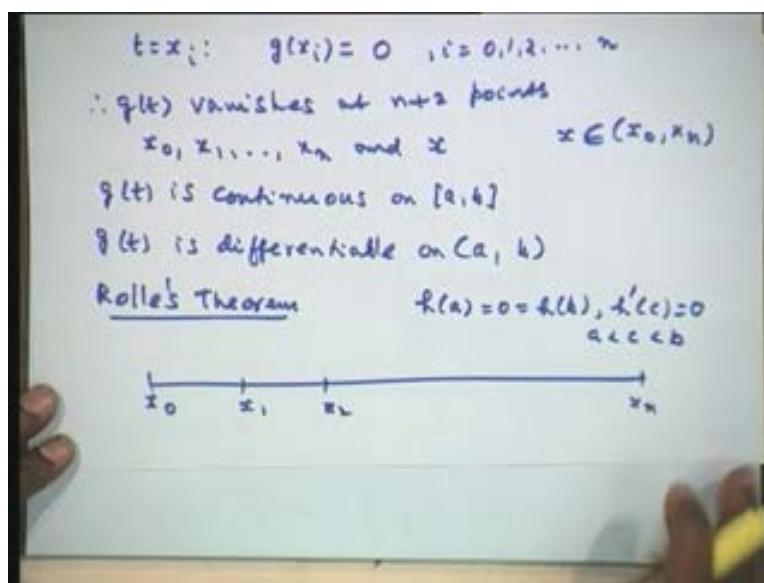 t = x_i : g(x_i) = 0 , i = 0, 1, 2, .... n
∴ g(t) vanishes at n+2 points
x_0, x_1, ..., x_n and x x ∈ (x_0, x_n)
g(t) is continuous on [a, b]
g(t) is differentiable on (a, b)
Rolle's Theorem h(a) = 0 = h(b), h'(c) = 0
a < c < b
x_0 x_1 x_2 x_n